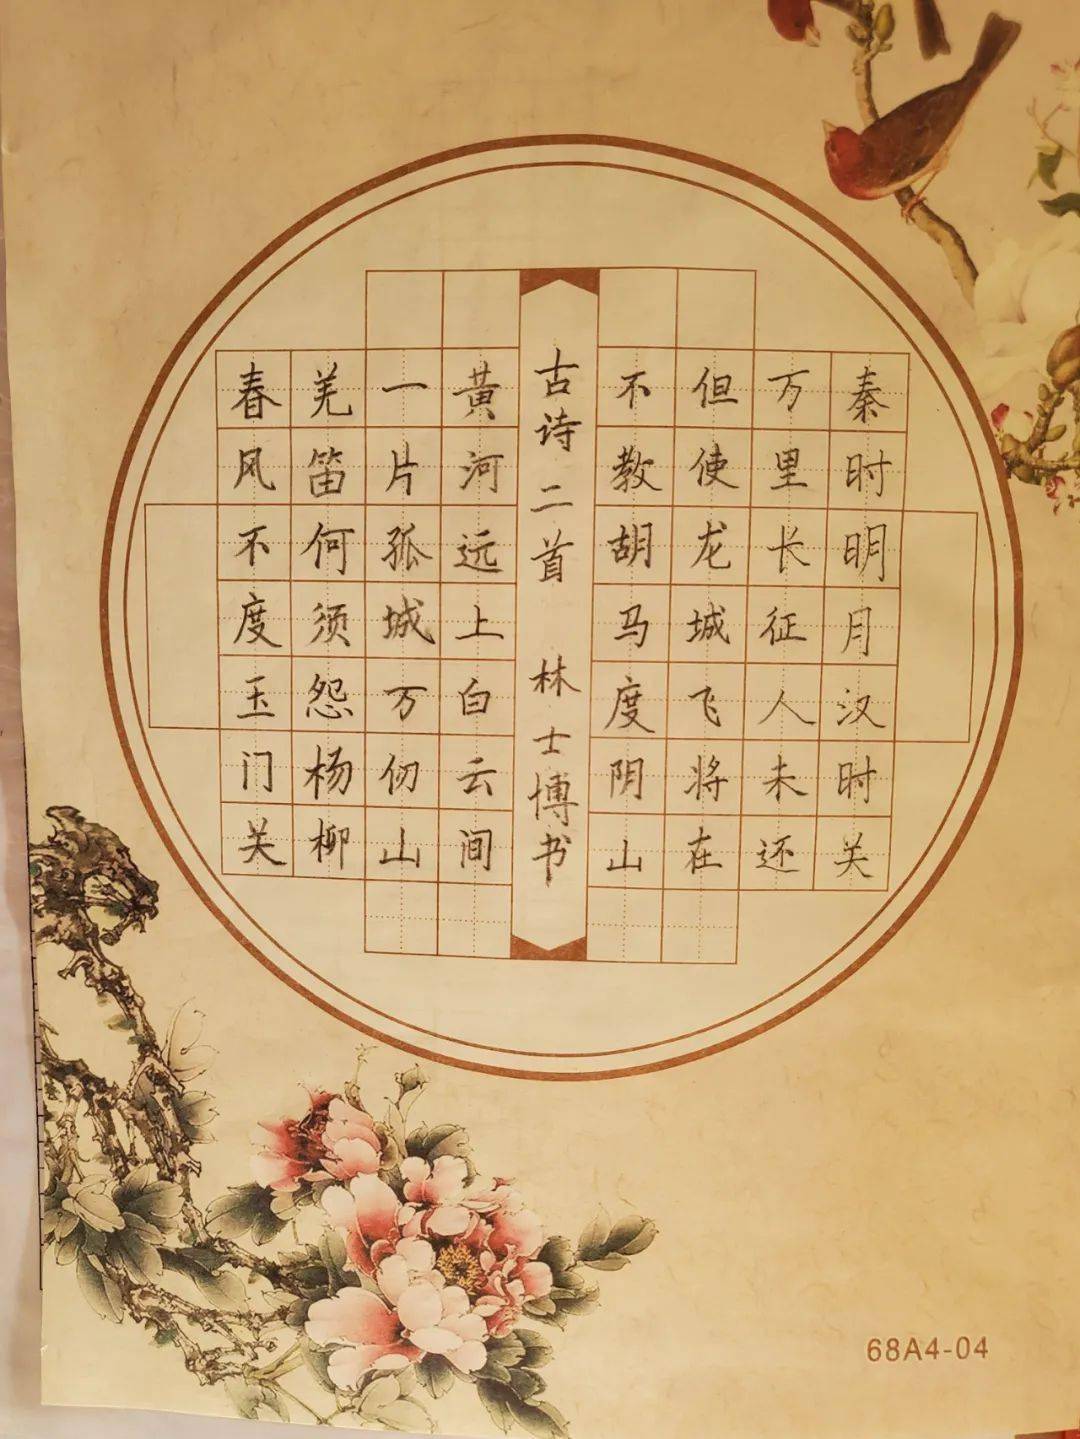 秦时明月汉时关
万里长征人未还
但使龙城飞将在
不教胡马度阴山
古诗二首 林士博书
黄河远上白云间
一片孤城万仞山
羌笛何须怨杨柳
春风不度玉门关
68A4-04